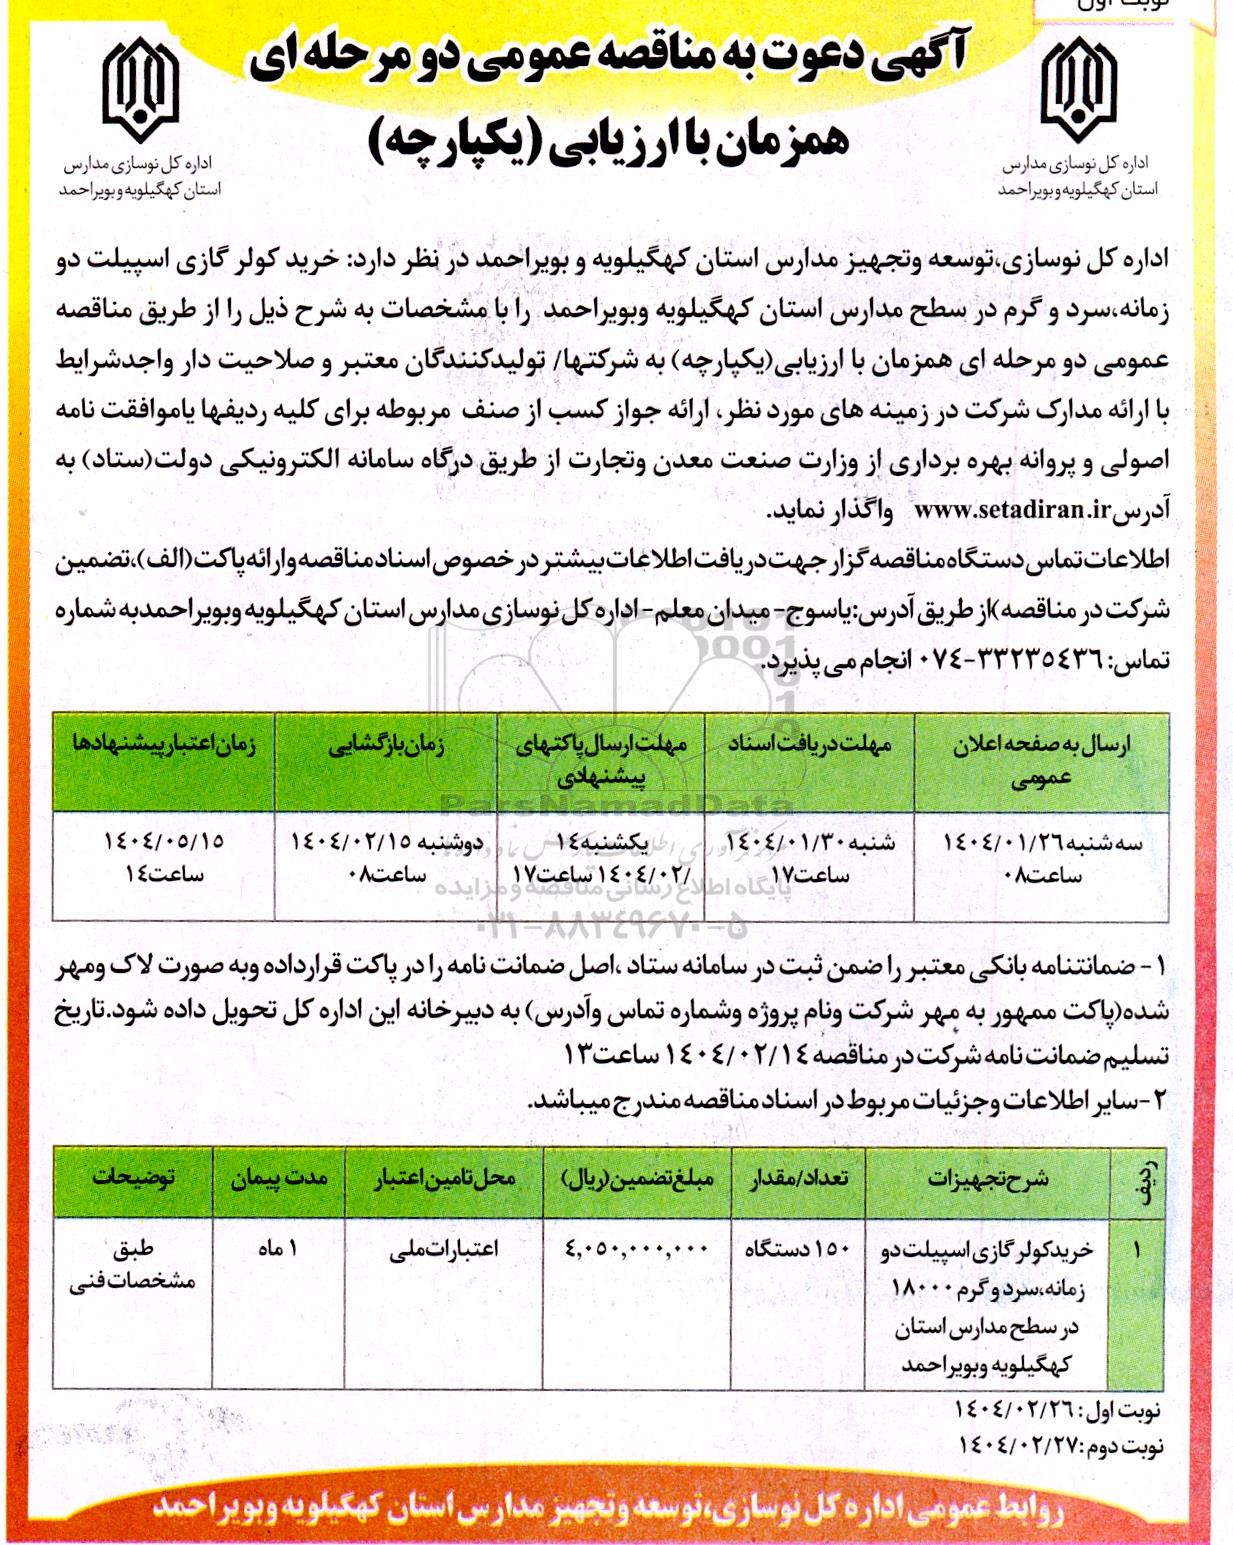 نوبت اول
آگهی دعوت به مناقصه عمومی دو مرحله ای
همزمان با ارزیابی (یکپارچه)
اداره کل نوسازی مدارس
استان کهگیلویه و بویراحمد
اداره کل نوسازی مدارس
استان کهگیلویه و بویراحمد
اداره کل نوسازی،توسعه وتجهیز مدارس استان کهگیلویه و بویراحمد در نظر دارد: خرید کولر گازی اسپیلت دو
زمانه،سرد و گرم در سطح مدارس استان کهگیلویه وبویراحمد را با مشخصات به شرح ذیل را از طریق مناقصه
عمومی دو مرحله ای همزمان با ارزیابی(یکپارچه) به شرکتها/ تولیدکنندگان معتبر و صلاحیت دار واجدشرایط
با ارائه مدارک شرکت در زمینه های مورد نظر، ارائه جواز کسب از صنف مربوطه برای کلیه ردیفها یاموافقت نامه
اصولی و پروانه بهره برداری از وزارت صنعت معدن وتجارت از طریق درگاه سامانه الکترونیکی دولت(ستاد) به
آدرس www.setadiran.ir واگذار نماید.
اطلاعات تماس دستگاه مناقصه گزار جهت دریافت اطلاعات بیشتر در خصوص اسناد مناقصه وارائه پاکت(الف)،تضمین
شرکت در مناقصه)از طریق آدرس:یاسوج- میدان معلم- اداره کل نوسازی مدارس استان کهگیلویه وبویراحمدبه شماره
تماس: ۳۳۲۳۵۴۳۶-۰۷۴ انجام می پذیرد.
ارسال به صفحه اعلان عمومی | مهلت دریافت اسناد | مهلت ارسال پاکتهای پیشنهادی | زمان بازگشایی | زمان اعتبار پیشنهادها
سه شنبه ۱۴۰۴/۰۱/۲۶ ساعت۰۸ | شنبه ۱۴۰۴/۰۱/۳۰ ساعت۱۷ | یکشنبه۱۴ /۱۴۰۴/۰۲ ساعت۱۷ | دوشنبه ۱۴۰۴/۰۲/۱۵ ساعت۰۸ | ۱۴۰۴/۰۵/۱۵ ساعت۱۴
ParsNamadData
پایگاه اطلاع رسانی مناقصه و مزایده
۰۲۱-۸۸۳۴۹۶۷۰-۵
۱- ضمانتنامه بانکی معتبر را ضمن ثبت در سامانه ستاد ،اصل ضمانت نامه را در پاکت قرارداده وبه صورت لاک ومهر
شده(پاکت ممهور به مهر شرکت ونام پروژه وشماره تماس وآدرس) به دبیرخانه این اداره کل تحویل داده شود.تاریخ
تسلیم ضمانت نامه شرکت در مناقصه ۱۴۰۴/۰۲/۱۴ ساعت۱۳
۲-سایر اطلاعات وجزئیات مربوط در اسناد مناقصه مندرج میباشد.
ردیف | شرح تجهیزات | تعداد/مقدار | مبلغ تضمین(ریال) | محل تامین اعتبار | مدت پیمان | توضیحات
۱ | خریدکولر گازی اسپیلت دو | ۱۵۰ دستگاه | ۴,۰۵۰,۰۰۰,۰۰۰ | اعتبارات ملی | ۱ ماه | طبق
زمانه،سرد و گرم ۱۸۰۰۰ | مشخصات فنی
در سطح مدارس استان
کهگیلویه وبویراحمد
نوبت اول: ۱۴۰۴/۰۲/۲۶
نوبت دوم:۱۴۰۴/۰۲/۲۷
روابط عمومی اداره کل نوسازی،توسعه وتجهیز مدارس استان کهگیلویه وبویراحمد